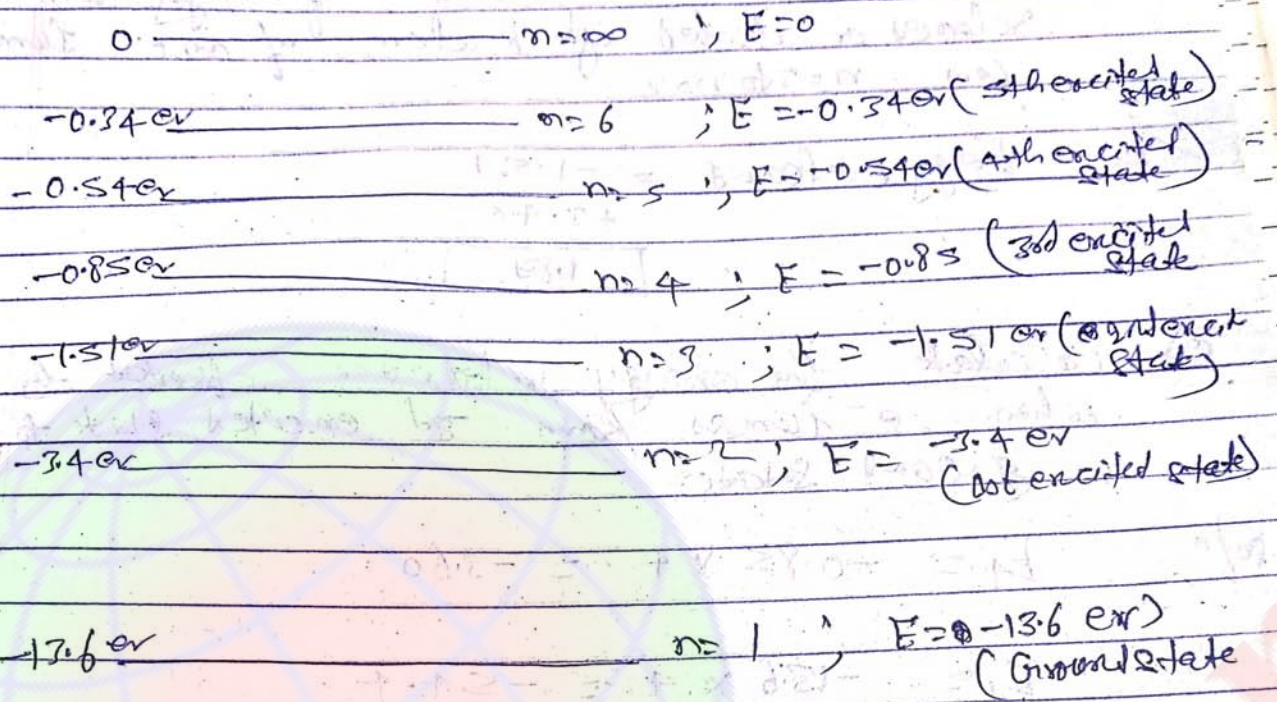 0 n=∞ ; E=0
-0.34 ev n=6 ; E=-0.34 ev (5th excited state)
-0.54 ev n=5 ; E=-0.54 ev (4th excited state)
-0.85 ev n=4 ; E=-0.85 (3rd excited state
-1.51 ev n=3 ; E=-1.51 ev ( state)
-3.4 ev n=2 ; E=-3.4 ev
(1st excited state)
-13.6 ev n=1 ; E=-13.6 ev)
(Ground state